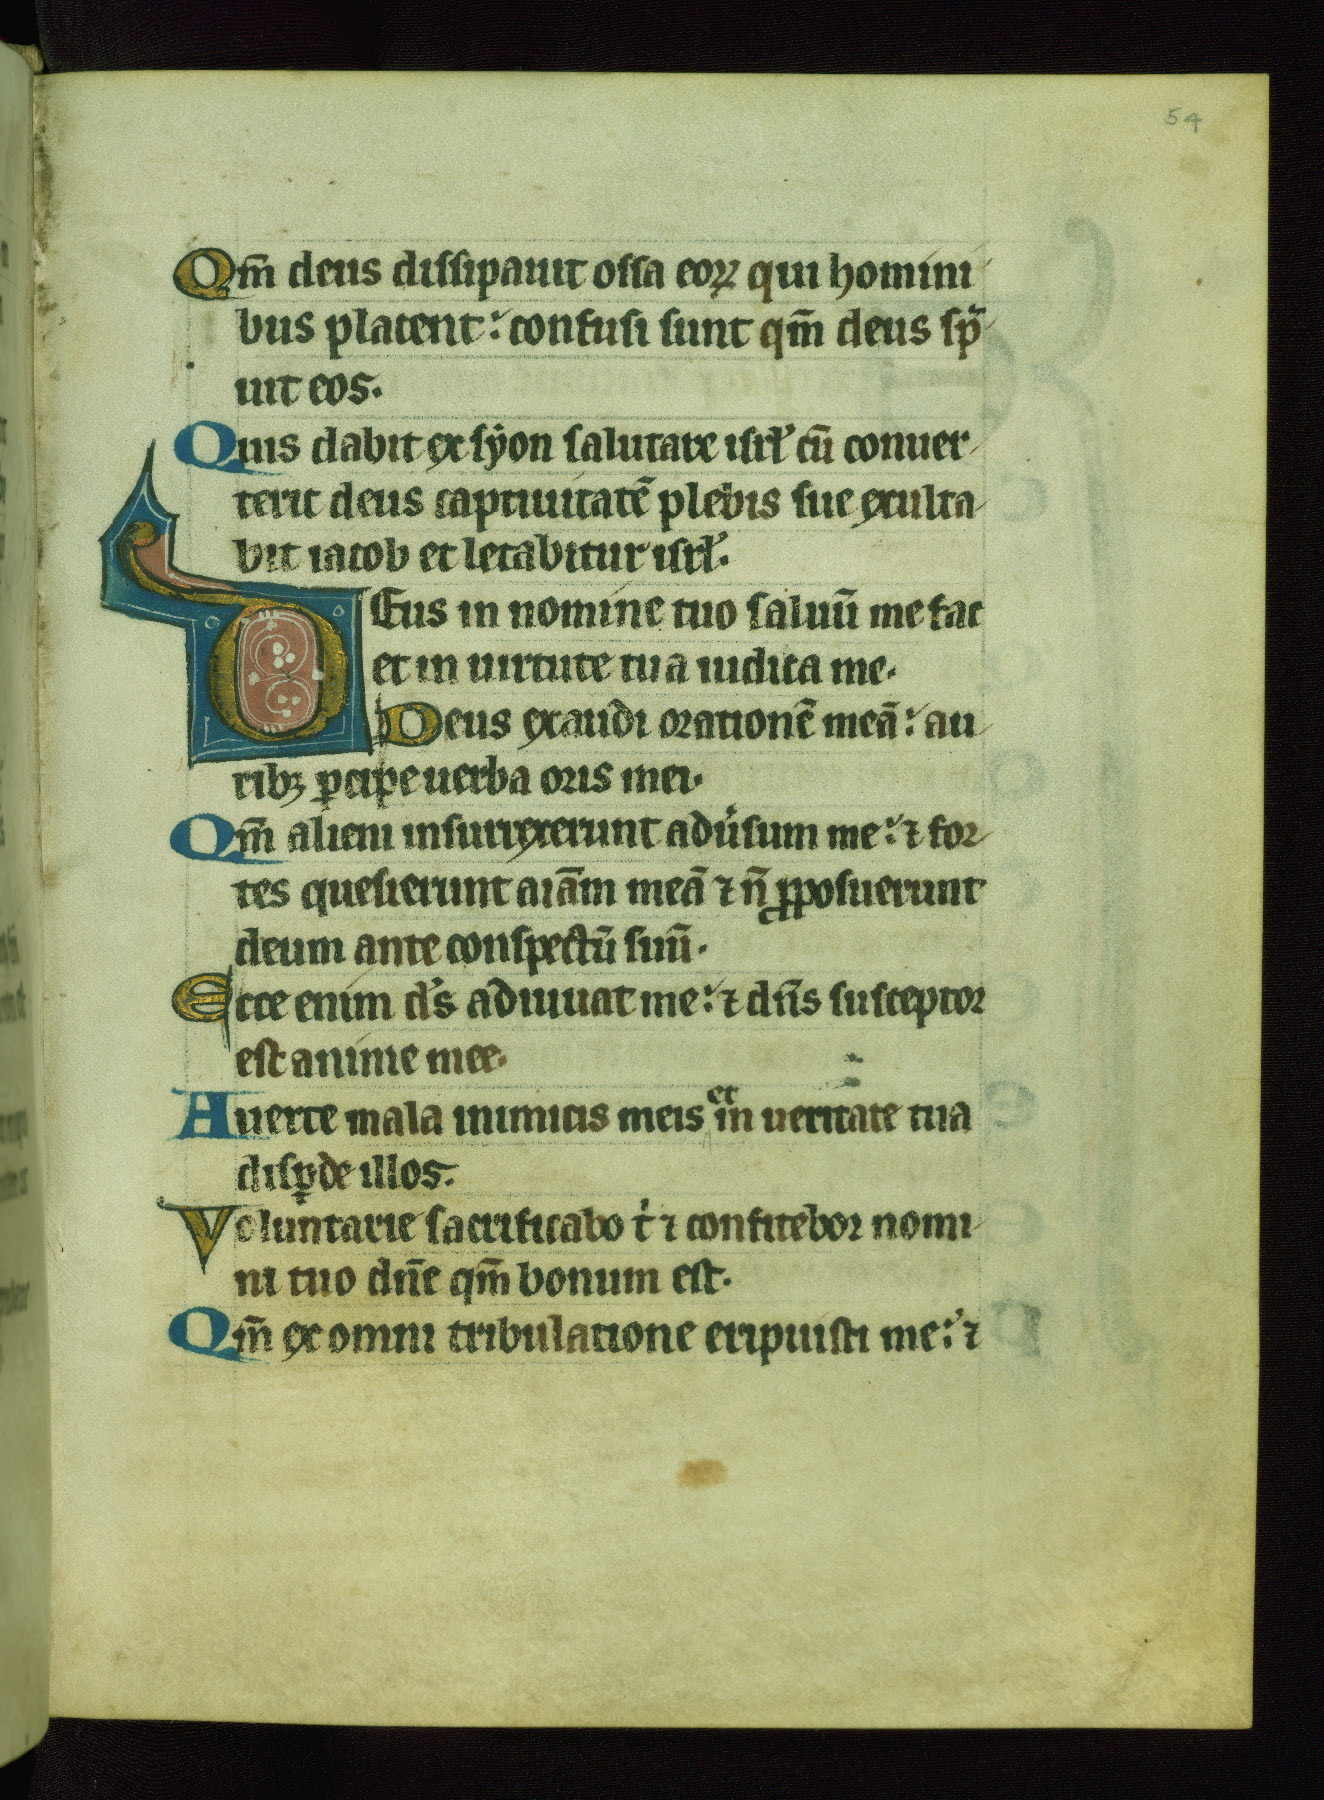 54
Qm̄ deus dissipauit ossa eoꝝ qui homini
bus placent: confusi sunt qm̄ deus sp̄
uit eos.
Quis dabit ex syon salutare isrl̓ cū conuer
terit deus captiuitatē plebis sue exulta
bit iacob et letabitur isrl̓.
DEus in nomine tuo saluū me fac
et in uirtute tua iudica me.
Deus exaudi orationē meā: au
ribꝫ p̄cipe uerba oris mei.
Qm̄ alieni insurrexerunt adu̓sum me: ⁊ for
tes quesierunt aīam meā ⁊ n̄ ꝓposuerunt
deum ante conspectū suū.
Ecce enim d̓s adiuuat me: ⁊ dn̄s susceptor
est anime mee.
Auerte mala inimicis meis et in ueritate tua
disꝑde illos.
Voluntarie sacrificabo t̓ ⁊ confitebor nomi
ni tuo dn̄e qm̄ bonum est.
Qm̄ ex omni tribulatione eripuisti me: ⁊